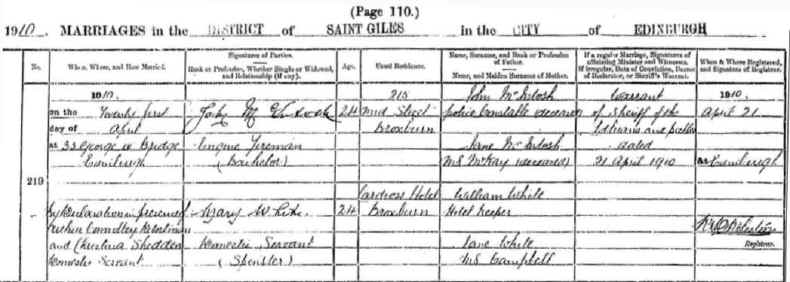 (Page 110.)
1910. MARRIAGES in the DISTRICT of SAINT GILES in the CITY of EDINBURGH
No.
When, Where, and How Married.
Signatures of Parties.
Rank or Profession, Whether Single or Widowed, and Relationship (if any).
Age.
Usual Residence.
Name, Surname, and Rank or Profession of Father.
Name, and Maiden Surname of Mother.
If a regular Marriage, Signatures of officiating Minister and Witnesses. If irregular, Date of Conviction, Decree of Declarator, or Sheriff's Warrant.
When & Where Registered, and Signature of Registrar.
219
1910.
on the Twenty first
day of April
at 33 George IV Bridge
Edinburgh
By Declaration in presence of
Arthur Connolley
and Christina Shedden
Domestic Servant
John McIntosh
Engine Fireman
(Bachelor)
24
215
Street
Broxburn
John McIntosh
Police Constable (deceased)
Jane McIntosh
M.S. McKay (deceased)
Warrant
of Sheriff of the
Lothians and Peebles
dated
21 April 1910
1910.
April 21
at Edinburgh
Registrar.
Mary White
Domestic Servant
(Spinster)
24
Hotel
Broxburn
William White
Hotel Keeper
Jane White
M.S. Campbell